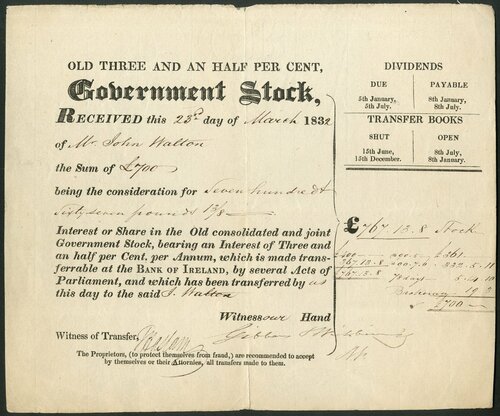 OLD THREE AND AN HALF PER CENT,
Government Stock,
RECEIVED this 23d day of March 1832
of Mr. John Walton
the Sum of £700
being the consideration for Seven hundred &
Sixty seven pounds 13/8
Interest or Share in the Old consolidated and joint
Government Stock, bearing an Interest of Three and
an half Per Cent. per Annum, which is made trans-
ferrable at the BANK OF IRELAND, by several Acts of
Parliament, and which has been transferred by us
this day to the said J. Walton
Witness our Hand
Witness of Transfer,
The Proprietors, (to protect themselves from fraud,) are recommended to accept
by themselves or their Attornies, all transfers made to them.
DIVIDENDS
DUE PAYABLE
5th January, 8th January,
5th July. 8th July.
TRANSFER BOOKS
SHUT OPEN
15th June, 8th July,
15th December. 8th January.
£767 13.8 Stock
767.13.8
£700